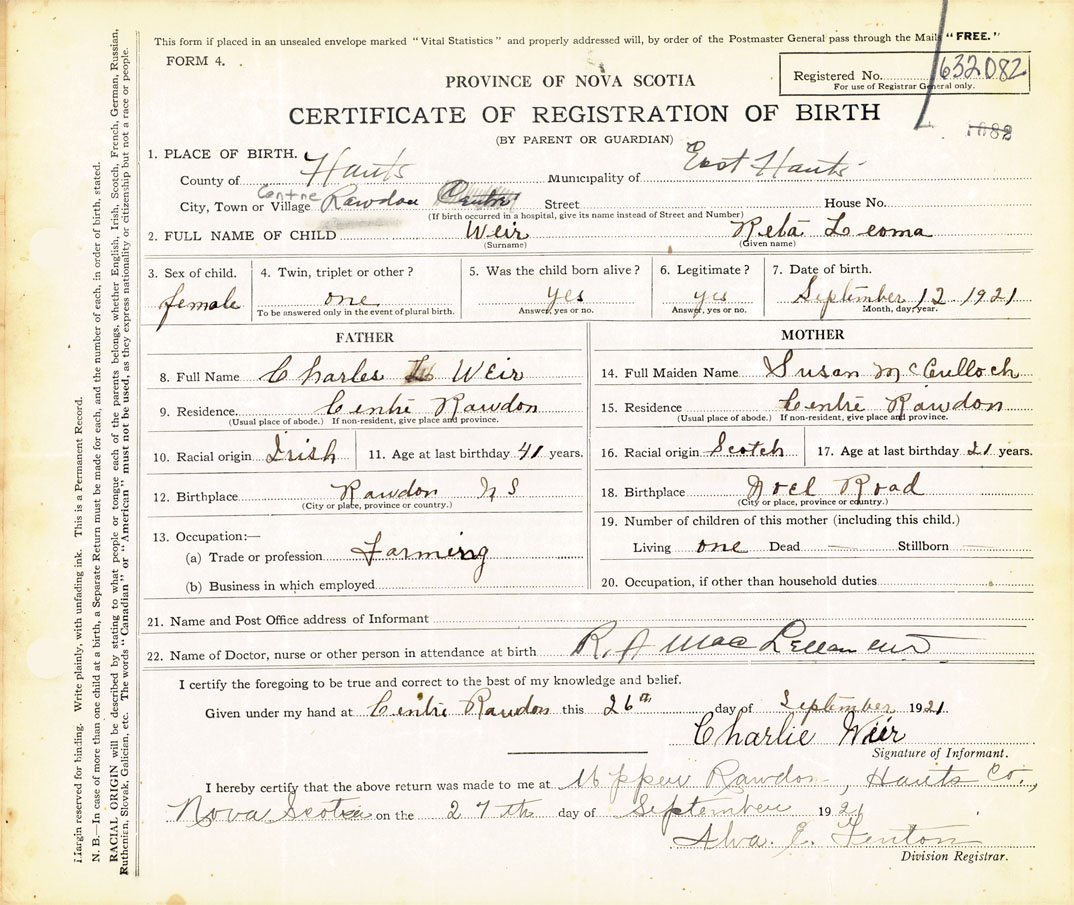 This form if placed in an unsealed envelope marked "Vital Statistics" and properly addressed will, by order of the Postmaster General pass through the Mail "FREE."
FORM 4.
PROVINCE OF NOVA SCOTIA
Registered No. 632082
For use of Registrar General only.
CERTIFICATE OF REGISTRATION OF BIRTH
1882
(BY PARENT OR GUARDIAN)
1. PLACE OF BIRTH.
County of Hants Municipality of East Hants
City, Town or Village Centre Rawdon Centre Street House No.
(If birth occurred in a hospital, give its name instead of Street and Number)
2. FULL NAME OF CHILD Weir Reta Leoma
(Surname) (Given name)
3. Sex of child. 4. Twin, triplet or other? 5. Was the child born alive? 6. Legitimate? 7. Date of birth.
female one yes yes September 12 1921
To be answered only in the event of plural birth. Answer, yes or no. Answer, yes or no. Month, day, year.
FATHER
8. Full Name Charles Weir
9. Residence. Centre Rawdon
(Usual place of abode.) If non-resident, give place and province.
10. Racial origin Irish 11. Age at last birthday 41 years.
12. Birthplace Rawdon N S
(City or place, province or country.)
13. Occupation:—
(a) Trade or profession Farming
(b) Business in which employed
MOTHER
14. Full Maiden Name Susan McCulloch
15. Residence Centre Rawdon
(Usual place of abode.) If non-resident, give place and province.
16. Racial origin Scotch 17. Age at last birthday 21 years.
18. Birthplace Noel Road
(City or place, province or country.)
19. Number of children of this mother (including this child.)
Living one Dead — Stillborn —
20. Occupation, if other than household duties
21. Name and Post Office address of Informant
22. Name of Doctor, nurse or other person in attendance at birth R. A MacLellan
I certify the foregoing to be true and correct to the best of my knowledge and belief.
Given under my hand at Centre Rawdon this 26th day of September 1921
Charlie Weir
Signature of Informant.
I hereby certify that the above return was made to me at Upper Rawdon, Hants Co.,
Nova Scotia on the 27th day of September 1921
Alva. E. Fenton
Division Registrar.
Margin reserved for binding. Write plainly, with unfading ink. This is a Permanent Record.
N. B.—In case of more than one child at a birth, a Separate Return must be made for each, and the number of each, in order of birth, stated.
RACIAL ORIGIN will be described by stating to what people or tongue each of the parents belongs, whether English, Irish, Scotch, French, German, Russian,
Ruthenian, Slovak, Galician, etc. The words "Canadian" or "American" must not be used, as they express nationality or citizenship but not a race or people.